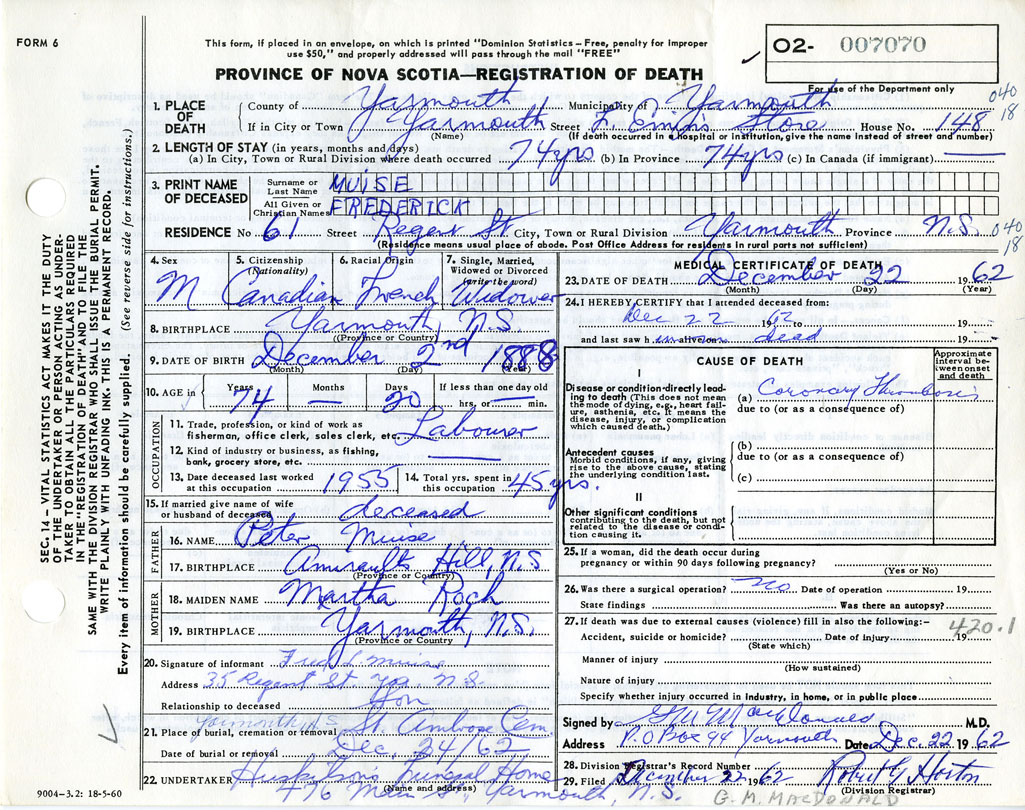 FORM 6
This form, if placed in an envelope, on which is printed "Dominion Statistics – Free, penalty for improper
use $50," and properly addressed will pass through the mail "FREE"
02- 007070
For use of the Department only
PROVINCE OF NOVA SCOTIA—REGISTRATION OF DEATH
040
18
1. PLACE OF DEATH
County of Yarmouth Municipality of Yarmouth
If in City or Town Yarmouth Street Store House No. 148
(Name) (If death occurred in a hospital or institution, give the name instead of street and number)
2. LENGTH OF STAY (in years, months and days)
(a) In City, Town or Rural Division where death occurred 74 yrs (b) In Province 74 yrs (c) In Canada (if immigrant)
3. PRINT NAME OF DECEASED
Surname or Last Name MUISE
All Given or Christian Names FREDERICK
RESIDENCE No. 61 Street Regent St City, Town or Rural Division Yarmouth Province N.S. 040
18
(Residence means usual place of abode. Post Office Address for residents in rural parts not sufficient)
4. Sex M
5. Citizenship (Nationality) Canadian
6. Racial Origin French
7. Single, Married, Widowed or Divorced (write the word) Widower
8. BIRTHPLACE Yarmouth, N.S.
(Province or Country)
9. DATE OF BIRTH December 2nd 1888
(Month) (Day) (Year)
10. AGE in Years 74 Months — Days 20 If less than one day old hrs. or min.
OCCUPATION
11. Trade, profession, or kind of work as fisherman, office clerk, sales clerk, etc. Labourer
12. Kind of industry or business, as fishing, bank, grocery store, etc.
13. Date deceased last worked at this occupation 1955
14. Total yrs. spent in this occupation 45 yrs.
15. If married give name of wife or husband of deceased deceased
FATHER
16. NAME Peter Muise
17. BIRTHPLACE Amiraults Hill, N.S
(Province or Country)
MOTHER
18. MAIDEN NAME Martha Roch
19. BIRTHPLACE Yarmouth, N.S.
(Province or Country
20. Signature of informant Fred L Muise
Address 35 Regent St. Yar. N.S.
Relationship to deceased Son
Yarmouth N.S
21. Place of burial, cremation or removal St. Ambrose Cem.
Date of burial or removal Dec. 24/62
22. UNDERTAKER Huskilson's Funeral Home
(Name and address)
476 Main St, Yarmouth, N.S.
9004–3.2: 18-5-60
MEDICAL CERTIFICATE OF DEATH
23. DATE OF DEATH December 22 1962
(Month) (Day) (Year)
24. I HEREBY CERTIFY that I attended deceased from:
Dec 22 1962 19
and last saw h dead 19
CAUSE OF DEATH
Approximate interval between onset and death
I
Disease or condition directly leading to death (This does not mean the mode of dying, e.g., heart failure, asthenia, etc. It means the disease, injury, or complication which caused death.)
(a) Coronary Thrombosis
due to (or as a consequence of)
Antecedent causes
Morbid conditions, if any, giving rise to the above cause, stating the underlying condition last.
(b)
due to (or as a consequence of)
(c)
II
Other significant conditions
contributing to the death, but not related to the disease or condition causing it.
25. If a woman, did the death occur during
pregnancy or within 90 days following pregnancy?
(Yes or No)
26. Was there a surgical operation? no Date of operation 19
State findings Was there an autopsy?
27. If death was due to external causes (violence) fill in also the following:–
420.1
Accident, suicide or homicide? Date of injury 19
(State which)
Manner of injury
(How sustained)
Nature of injury
Specify whether injury occurred in industry, in home, or in public place
Signed by G M MacDonald M.D.
Address P.O Box 94 Yarmouth Date Dec. 22 1962
28. Division Registrar's Record Number
29. Filed December 22 1962 Robert G Horton
(Division Registrar)
G. M. MACDONALD
SEC. 14 – VITAL STATISTICS ACT MAKES IT THE DUTY
OF THE UNDERTAKER OR PERSON ACTING AS UNDER-
TAKER TO OBTAIN ALL THE PARTICULARS REQUIRED
IN THE "REGISTRATION OF DEATH" AND TO FILE THE
SAME WITH THE DIVISION REGISTRAR WHO SHALL ISSUE THE BURIAL PERMIT.
WRITE PLAINLY WITH UNFADING INK. THIS IS A PERMANENT RECORD.
Every item of information should be carefully supplied. (See reverse side for instructions.)